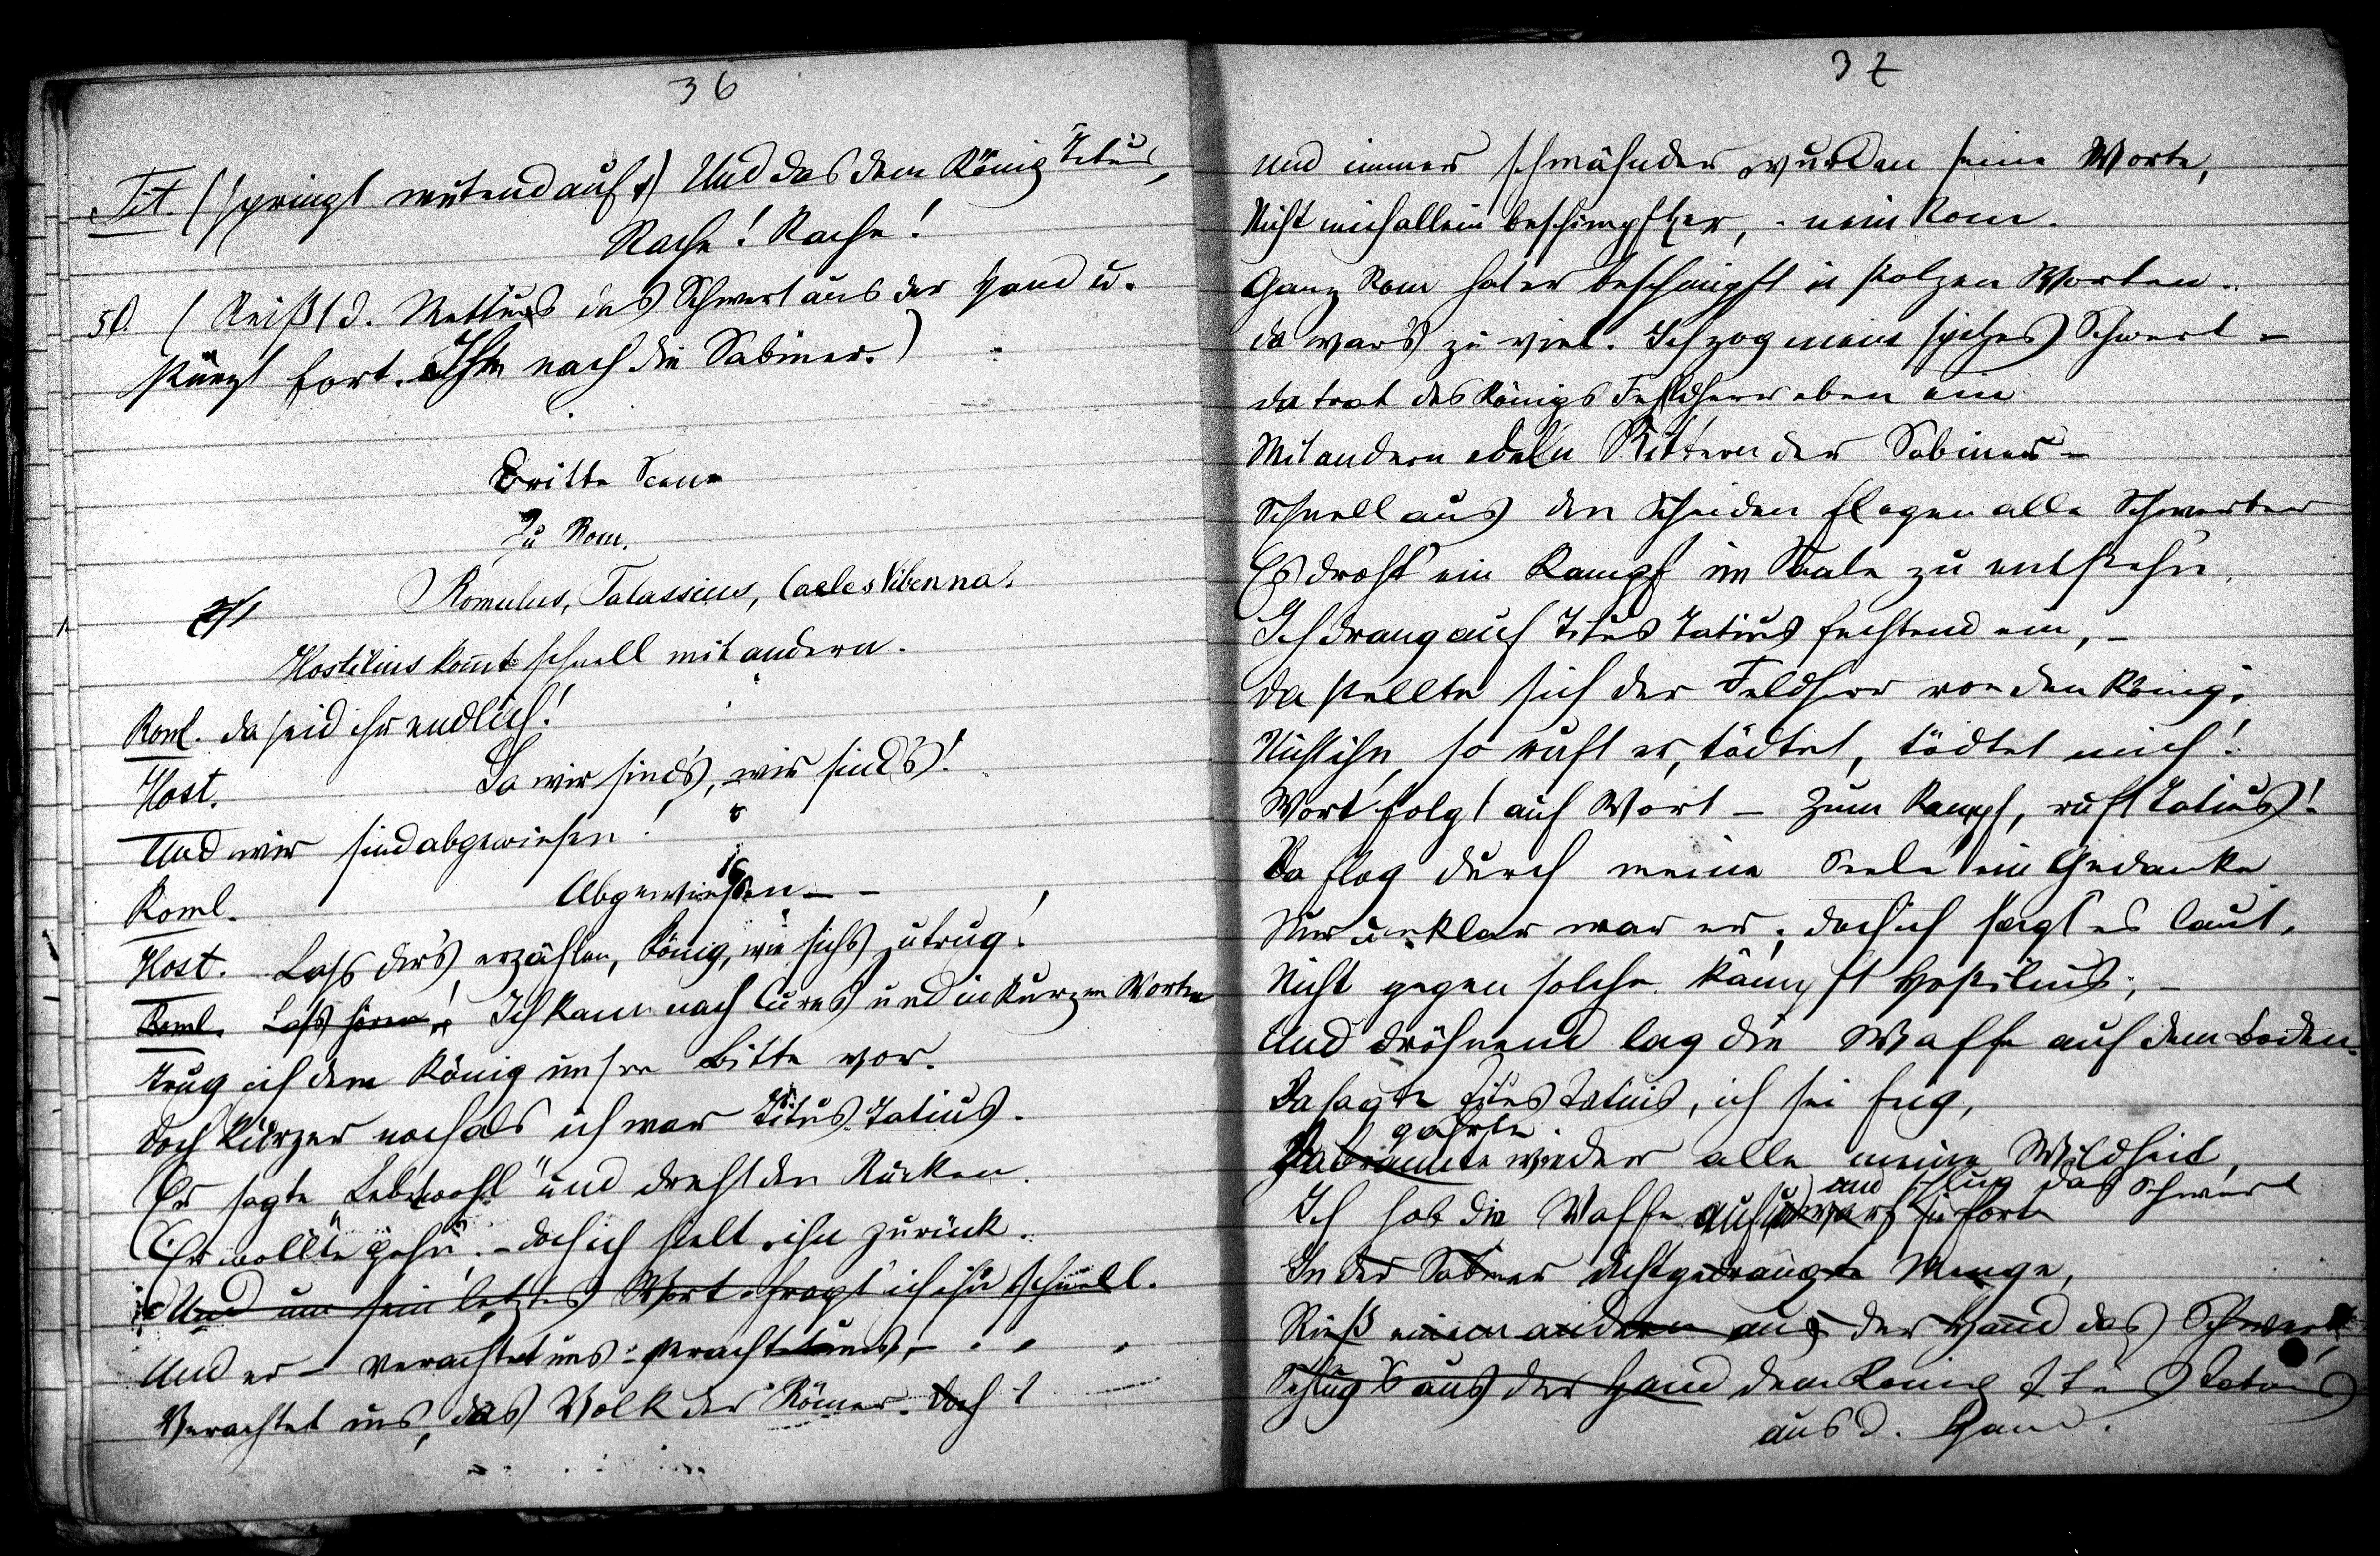 36
Tit. (springt wütend auf.) Und das dem König Titus,
Rache! Rache!
50. (Reißt d. Mettus das Schwert aus der Hand u.
stürzt fort. Ihm nach die Sabiner.)
Dritte Scene
Zu Rom.
Romulus, Talassius, Caeles Vibenna.
Hostilius kommt schnell mit andern.
Roml. Da seid ihr endlich!
Host. Ja wir sind's, wir sind's!
Und wir sind abgewiesen!
Roml. Abgewiesen – –
Host. Lass dir's erzählen, König, wie sichs zutrug!
Roml. Lass hören! Ich kam nach Cures und in kurzen Worten
Trug ich dem König unsre Bitte vor.
Doch kürzer noch als ich war Titus Tatius.
Er sagte „Lebewohl" und dreht den Rücken.
Er wollte gehn, – doch ich hielt ihn zurück.
Und um sein letztes Wort fragt ich ihn schnell.
Und er – verachtet uns – verachtet uns, –
Verachtet uns, das Volk der Römer. Doch
37
Und immer schmähender wurden seine Worte,
Nicht mich allein beschimpft er, – nein Rom.
Ganz Rom hat er beschimpft in stolzen Worten.
Da wars zu viel. Ich zog mein spitzes Schwert –
Da trat des Königs Feldherr eben ein
Mit andern edeln Rittern der Sabiner –
Schnell aus den Scheiden flogen alle Schwerter
Es droht ein Kampf im Saale zu entstehn,
Ich drang auf Titus Tatius fechtend ein, –
Da stellte sich der Feldherr vor den König.
Nicht ihn, so ruft er, tödtet, tödtet mich!
Wort folgt auf Wort – Zum Kampf, ruft Tatius!
Da flog durch meine Seele ein Gedanke
Nur unklar war er; doch ich sagt es laut,
Nicht gegen solche kämpft Hostilius; –
Und dröhnend lag die Waffe auf dem Boden.
Da sagte Titus Tatius, ich sei feig,
gährte
Da brannte wieder alle meine Wildheit,
und schlug das Schwert
Ich hob die Waffe auf u. warf sie fort
In der Sabiner dichtgedrängte Menge,
Rieß einem andern aus der Hand das Schwert,
Schlug's aus der Hand dem König Titus Tatius
aus d. Hand.